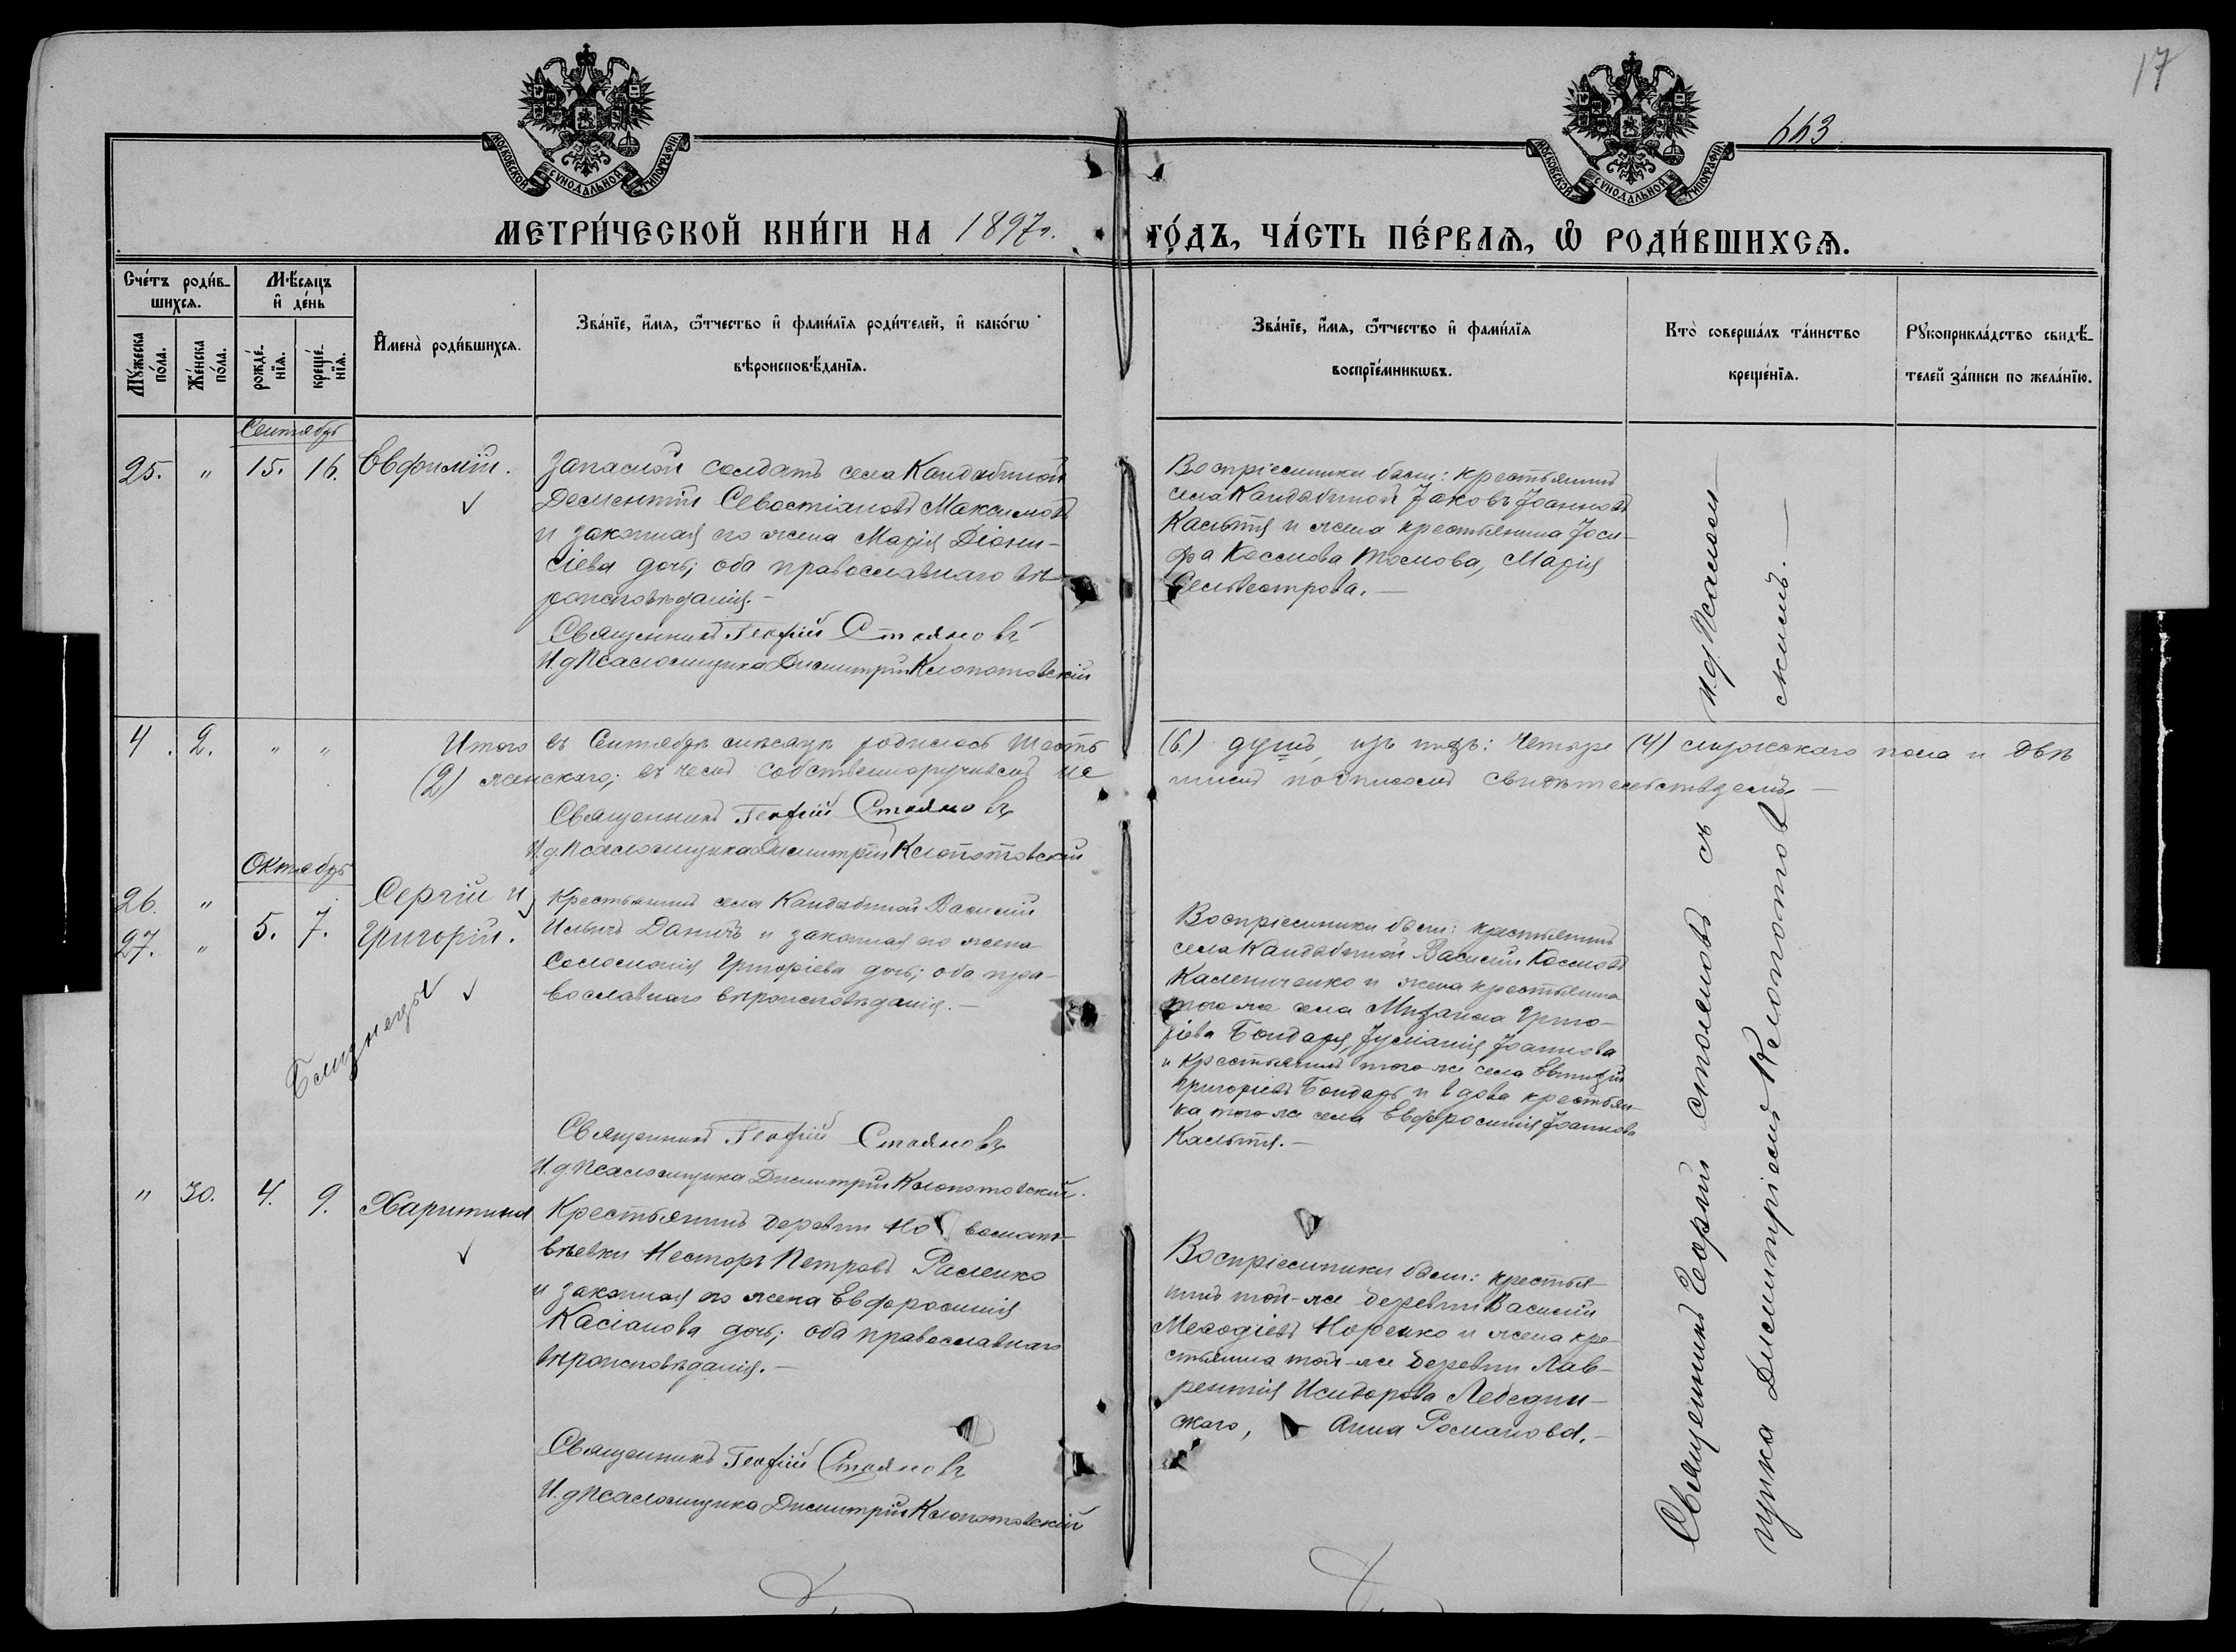 17
663.
МОСКОВСКОЙ СѴНОДАЛЬНОЙ ТИПОГРАФІИ
МОСКОВСКОЙ СѴНОДАЛЬНОЙ ТИПОГРАФІИ
МЕТРИ́ЧЕСКОЙ КНИ́ГИ НА 1897 г. ГО́ДЪ, ЧА́СТЬ ПЕ́РВАѦ, Ѡ҆ РОДИ́ВШИХСѦ.
Сче́тъ роди́в-
шихсѧ.
Мѣ́сяцъ
и҆ де́нь
Мꙋ́жеска
по́ла.
Же́нска
по́ла.
рожде́-
нїѧ.
креще́-
нїѧ.
И҆мена̀ роди́вшихсѧ.
Зва́нїе, и҆́мѧ, ѻ҆́тчество и҆ фами́лїѧ роди́телей, и҆ како́гѡ
вѣроисповѣ́данїѧ.
Зва́нїе, и҆́мѧ, ѻ҆́тчество и҆ фами́лїѧ
воспрїе́мникѡвъ.
Кто̀ соверша́лъ та́инство
креще́нїѧ.
Рꙋкоприкла́дство свидѣ́-
телей за́писи по жела́нїю.
Сентябрь
25. " 15. 16. Евфимій.
Запасной солдатъ села Кандыбиной
Дементій Севостіановъ Максимовъ
и законная его жена Марія Діони-
сіева дочь; оба православнаго вѣ-
роисповѣданія.-
Священникъ Георгій Стояновъ
И.д Псаломщика Димитрій Клопотовскій
Воспріемники были: крестьянинъ
села Кандыбиной Іаковъ Іоанновъ
Калытя и жена крестьянина Іоси-
фа Космова Томова, Марія
Сельвестрова.-
4. 2. " " Итого въ Сентябрѣ мѣсяцѣ родилось шесть (6.) душъ, изъ нихъ: четыре (4) мужскаго пола и двѣ
(2) женскаго; въ чемъ собственноручнымъ на- шимъ подписомъ свидѣтельствуемъ-
Священникъ Георгій Стояновъ
И.д. Псаломщика Димитрій Клопотовскій
Октябрь
26. " Сергій и
27. " 5. 7. Григорій.
Близнецы
Крестьянинъ села Кандыбиной Василій
Ильинъ и законная его жена
Соломонія Григоріева дочь; оба пра-
вославнаго вѣроисповѣданія.-
Священникъ Георгій Стояновъ
И.д Псаломщика Димитрій Клопотовскій.
Воспріемники были: крестьянинъ
села Кандыбиной Василій Космовъ
Калениченко и жена крестьянина
того же села Михаила Григо-
ріева Бондаря, Іуліанія Іоаннова
и крестьянинъ того же села
Григоріевъ Бондарь и вдова крестьян-
ка того же села Евфросинія Іоаннова
Калытя.-
" 30. 4. 9. Харитина
Крестьянинъ деревни Но вомат-
вѣевки Несторъ Петровъ
и законная его жена Евфросинія
Касіанова дочь; оба православнаго
вѣроисповѣданія.-
Священникъ Георгій Стояновъ
И.д Псаломщика Димитрій Клопотовскій
Воспріемники были: крестья-
нинъ той-же деревни Василій
Меѳодіевъ Норенко и жена кре-
стьянина той-же деревни Лав-
рентія Исидорова Лебедин-
скаго, Анна Романова.-
Священникъ Георгій Стояновъ съ И.д. Псалом-
щика Димитріемъ Клопотов скимъ.-